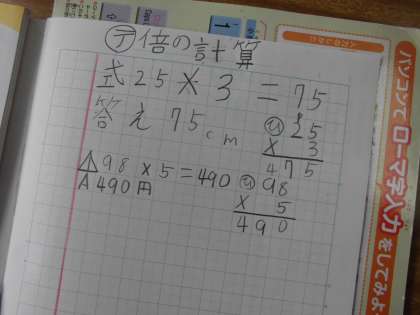 ㋢倍の計算
式25×3=75
答え75cm
㋪25
× 3
475
98×5=490
A490円
㋪98
× 5
490
パソコンでローマ字入力をしてみよ